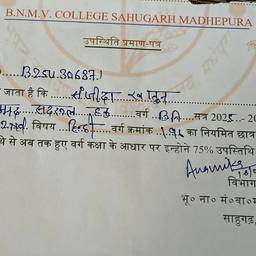 B.N.M.V. COLLEGE SAHUGARH MADHEPURA
उपस्थिति प्रमाण-पत्र
......B25U30687.1
जाता है कि ......संजीदा खातुन
हक ..........वर्ग ..BA....सत्र 2025..- 20
विषय ...हिन्दी... वर्ग क्रमांक ..196 का नियमित छात्र
थे से अब तक हुए वर्ग कक्षा के आधार पर इन्होने 75% उपस्थिति
Anamika
विभाग
भू० ना० मं०वा०म
साहुगढ़,